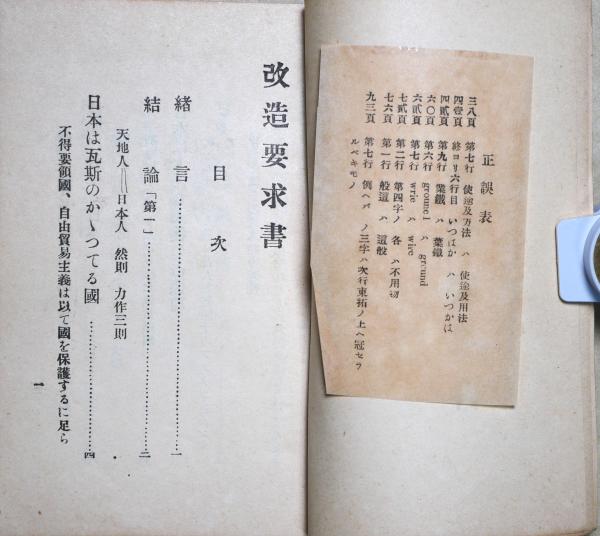 正誤表
三八頁 第七行 使途及方法 ハ 使途及用法
四壹頁 終ヨリ六行目 いつばか ハ いつかは
四貳頁 第九行 業鐵 ハ 葉鐵
六〇頁 第六行 grounel ハ ground
六貳頁 第七行 wrie ハ wire
七貳頁 第二行 第四字ノ 各 ハ不用ﾆ付
七六頁 第一行 般這 ハ 這般
九三頁 第七行 例ヘバ ノ三字ハ次行東拓ノ上ヘ冠セラ
ルベキモノ
改造要求書
目次
緒言……一
結論「第一」……二
天地人＝日本人 然則 力作三則
日本は瓦斯のかゝつてる國……四
不得要領國、自由貿易主義は以て國を保護するに足ら
一